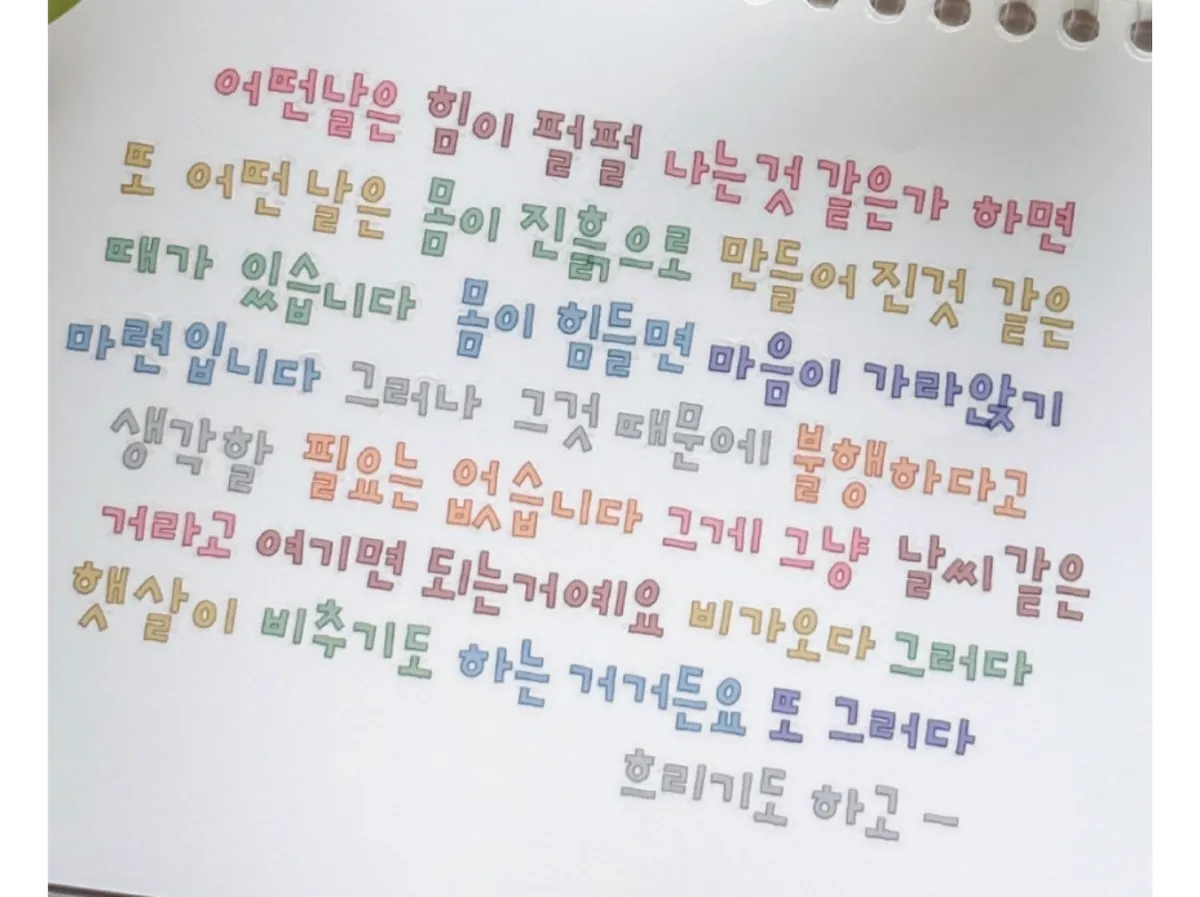 어떤날은 힘이 펄펄 나는것 같은가 하면
또 어떤 날은 몸이 진흙으로 만들어 진것 같은
때가 있습니다 몸이 힘들면 마음이 가라앉기
마련입니다 그러나 그것 때문에 불행하다고
생각할 필요는 없습니다 그게 그냥 날씨 같은
거라고 여기면 되는거예요 비가오다 그러다
햇살이 비추기도 하는 거거든요 또 그러다
흐리기도 하고 ㅡ